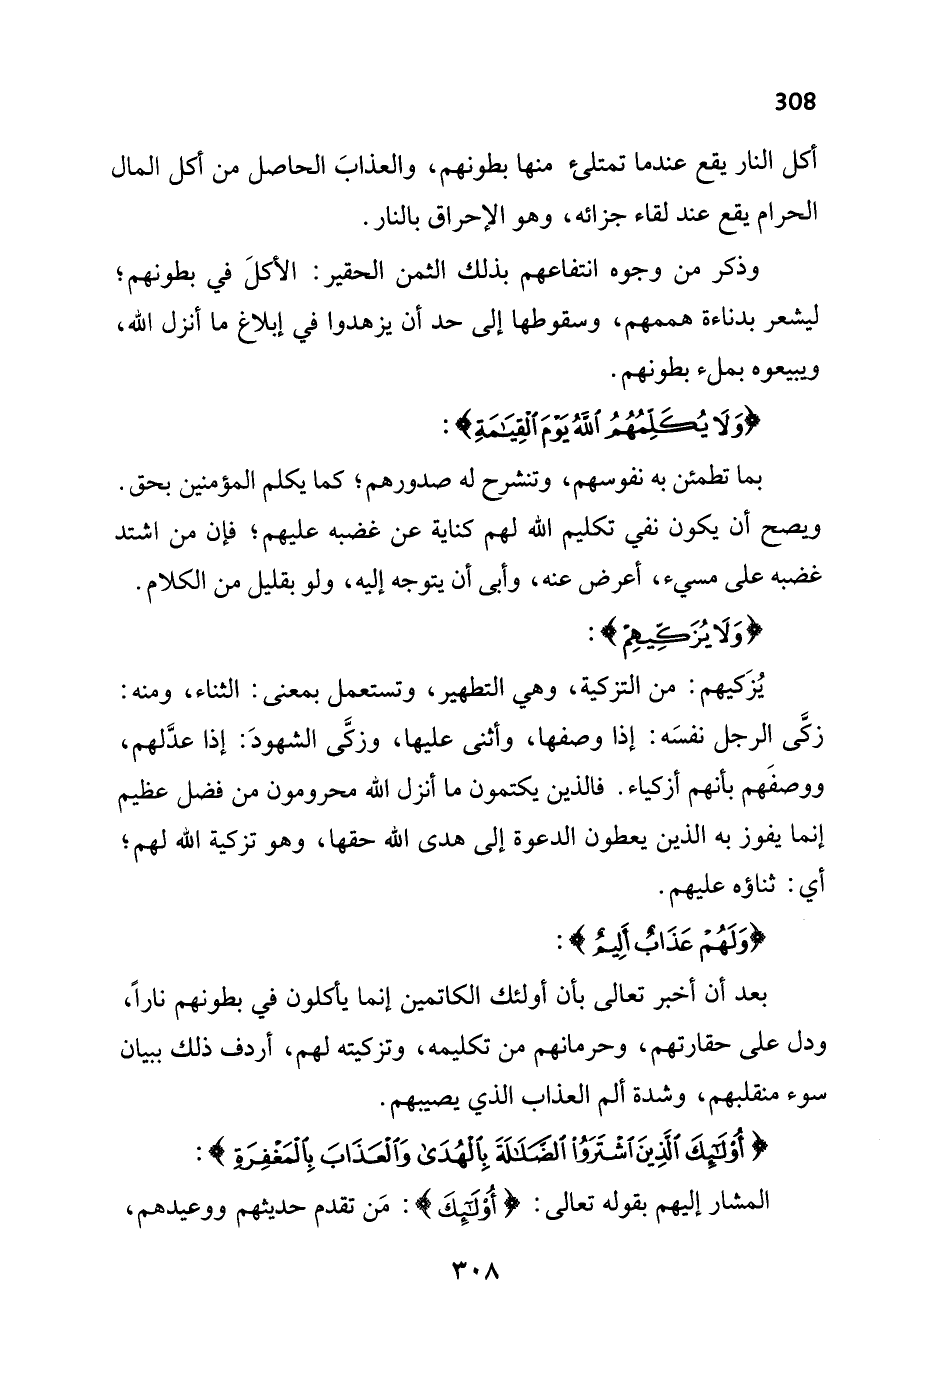 308
أكل النار يقع عندما تمتلئ منها بطونهم، والعذابَ الحاصل من أكل المال
الحرام يقع عند لقاء جزائه، وهو الإحراق بالنار.
وذكر من وجوه انتفاعهم بذلك الثمن الحقير: الأكلَ في بطونهم؛
ليشعر بدناءة هممهم، وسقوطها إلى حد أن يزهدوا في إبلاغ ما أنزل الله،
ويبيعوه بملء بطونهم.
﴿وَلَا يُكَلِّمُهُمُ ٱللَّهُ يَوْمَ ٱلْقِيَٰمَةِ﴾:
بما تطمئن به نفوسهم، وتنشرح له صدورهم؛ كما يكلم المؤمنين بحق.
ويصح أن يكون نفي تكليم الله لهم كناية عن غضبه عليهم؛ فإن من اشتد
غضبه على مسيء، أعرض عنه، وأبى أن يتوجه إليه، ولو بقليل من الكلام.
﴿وَلَا يُزَكِّيهِمْ﴾:
يُزَكيهم: من التزكية، وهي التطهير، وتستعمل بمعنى: الثناء، ومنه:
زكَّى الرجل نفسَه: إذا وصفها، وأثنى عليها، وزكَّى الشهودَ: إذا عدَّلهم،
ووصفَهم بأنهم أزكياء. فالذين يكتمون ما أنزل الله محرومون من فضل عظيم
إنما يفوز به الذين يعطون الدعوة إلى هدى الله حقها، وهو تزكية الله لهم؛
أي: ثناؤه عليهم.
﴿وَلَهُمْ عَذَابٌ أَلِيمٌ﴾:
بعد أن أخبر تعالى بأن أولئك الكاتمين إنما يأكلون في بطونهم ناراً،
ودل على حقارتهم، وحرمانهم من تكليمه، وتزكيته لهم، أردف ذلك ببيان
سوء منقلبهم، وشدة ألم العذاب الذي يصيبهم.
﴿أُوْلَٰٓئِكَ ٱلَّذِينَ ٱشْتَرَوُا۟ ٱلضَّلَٰلَةَ بِٱلْهُدَىٰ وَٱلْعَذَابَ بِٱلْمَغْفِرَةِ﴾:
المشار إليهم بقوله تعالى: ﴿أُوْلَٰٓئِكَ﴾: مَن تقدم حديثهم ووعيدهم،
٣٠٨